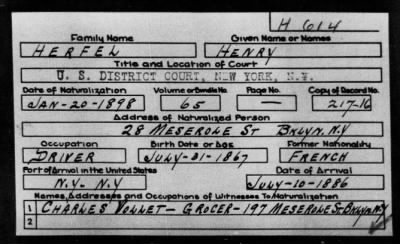 H 614
Family Name Given Name or Names
HERFEL HENRY
Title and Location of Court
U. S. DISTRICT COURT, NEW YORK, N.Y.
Date of Naturalization Volume or Bundle No. Page No. Copy of Record No.
JAN-20-1898 65 — 217-16
Address of Naturalized Person
28 MESEROLE ST BKLYN. N.Y
Occupation Birth Date or Age Former Nationality
DRIVER JULY-21-1867 FRENCH
Port of Arrival in the United States Date of Arrival
N.Y.- N.Y JULY-10-1886
Names, Addresses and Occupations of Witnesses To Naturalization
1 CHARLES VOLLET- GROCER-197 MESEROLE ST. BKLYN. N.Y
2